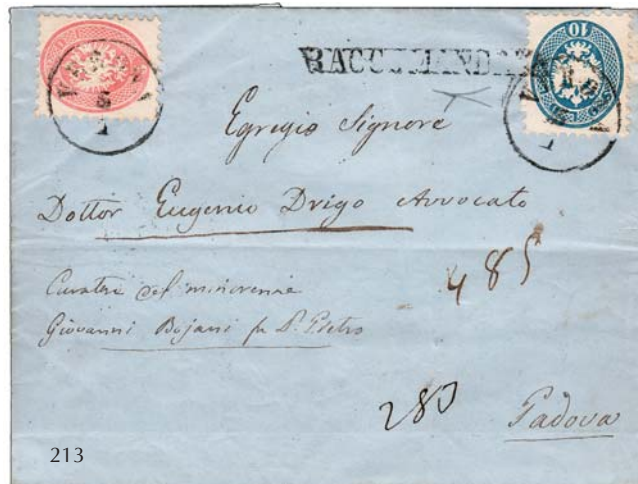 RACCOMANDATA
10
VERONA
6
1
VERONA
6
1
Egregio Signore
Dottor Eugenio Drigo Avvocato
Curatore del minorenne
Giovanni Bojani fu Pietro
485
283
Padova
213